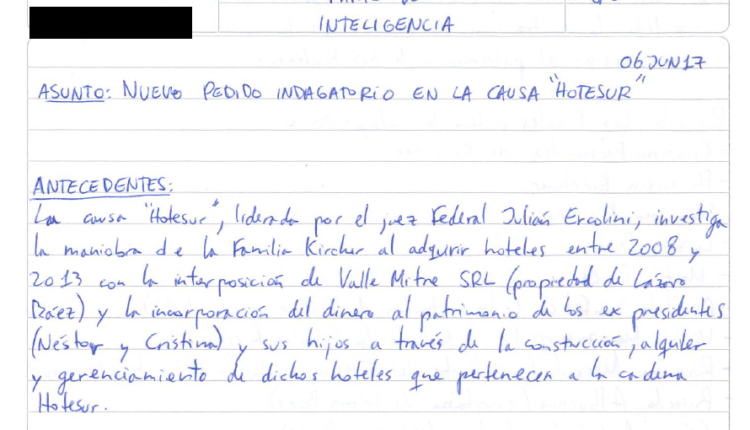 INTELIGENCIA
06 JUN 17
ASUNTO: NUEVO PEDIDO INDAGATORIO EN LA CAUSA "HOTESUR"
ANTECEDENTES:
La causa "Hotesur", liderada por el juez Federal Julián Ercolini, investiga
la maniobra de la Familia Kircher al adquirir hoteles entre 2008 y
2013 con la interposición de Valle Mitre SRL (propiedad de Lázaro
Báez) y la incorporación del dinero al patrimonio de los ex presidentes
(Néstor y Cristina) y sus hijos a través de la construcción, alquiler
y gerenciamiento de dichos hoteles que pertenecen a la cadena
Hotesur.